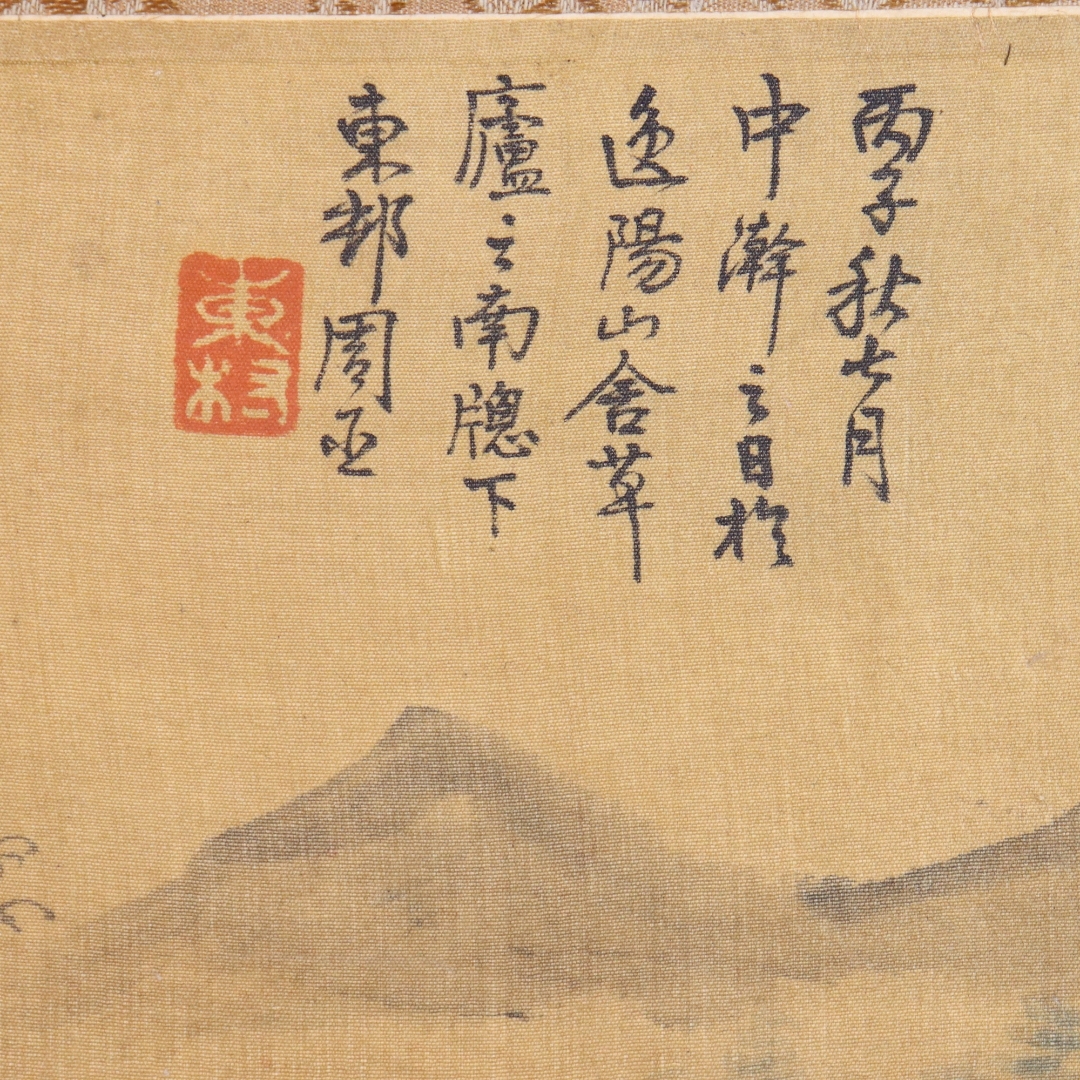 丙子秋七月
中澣之日於
逸陽山舍草
廬之南牕下
東邨周臣
東村